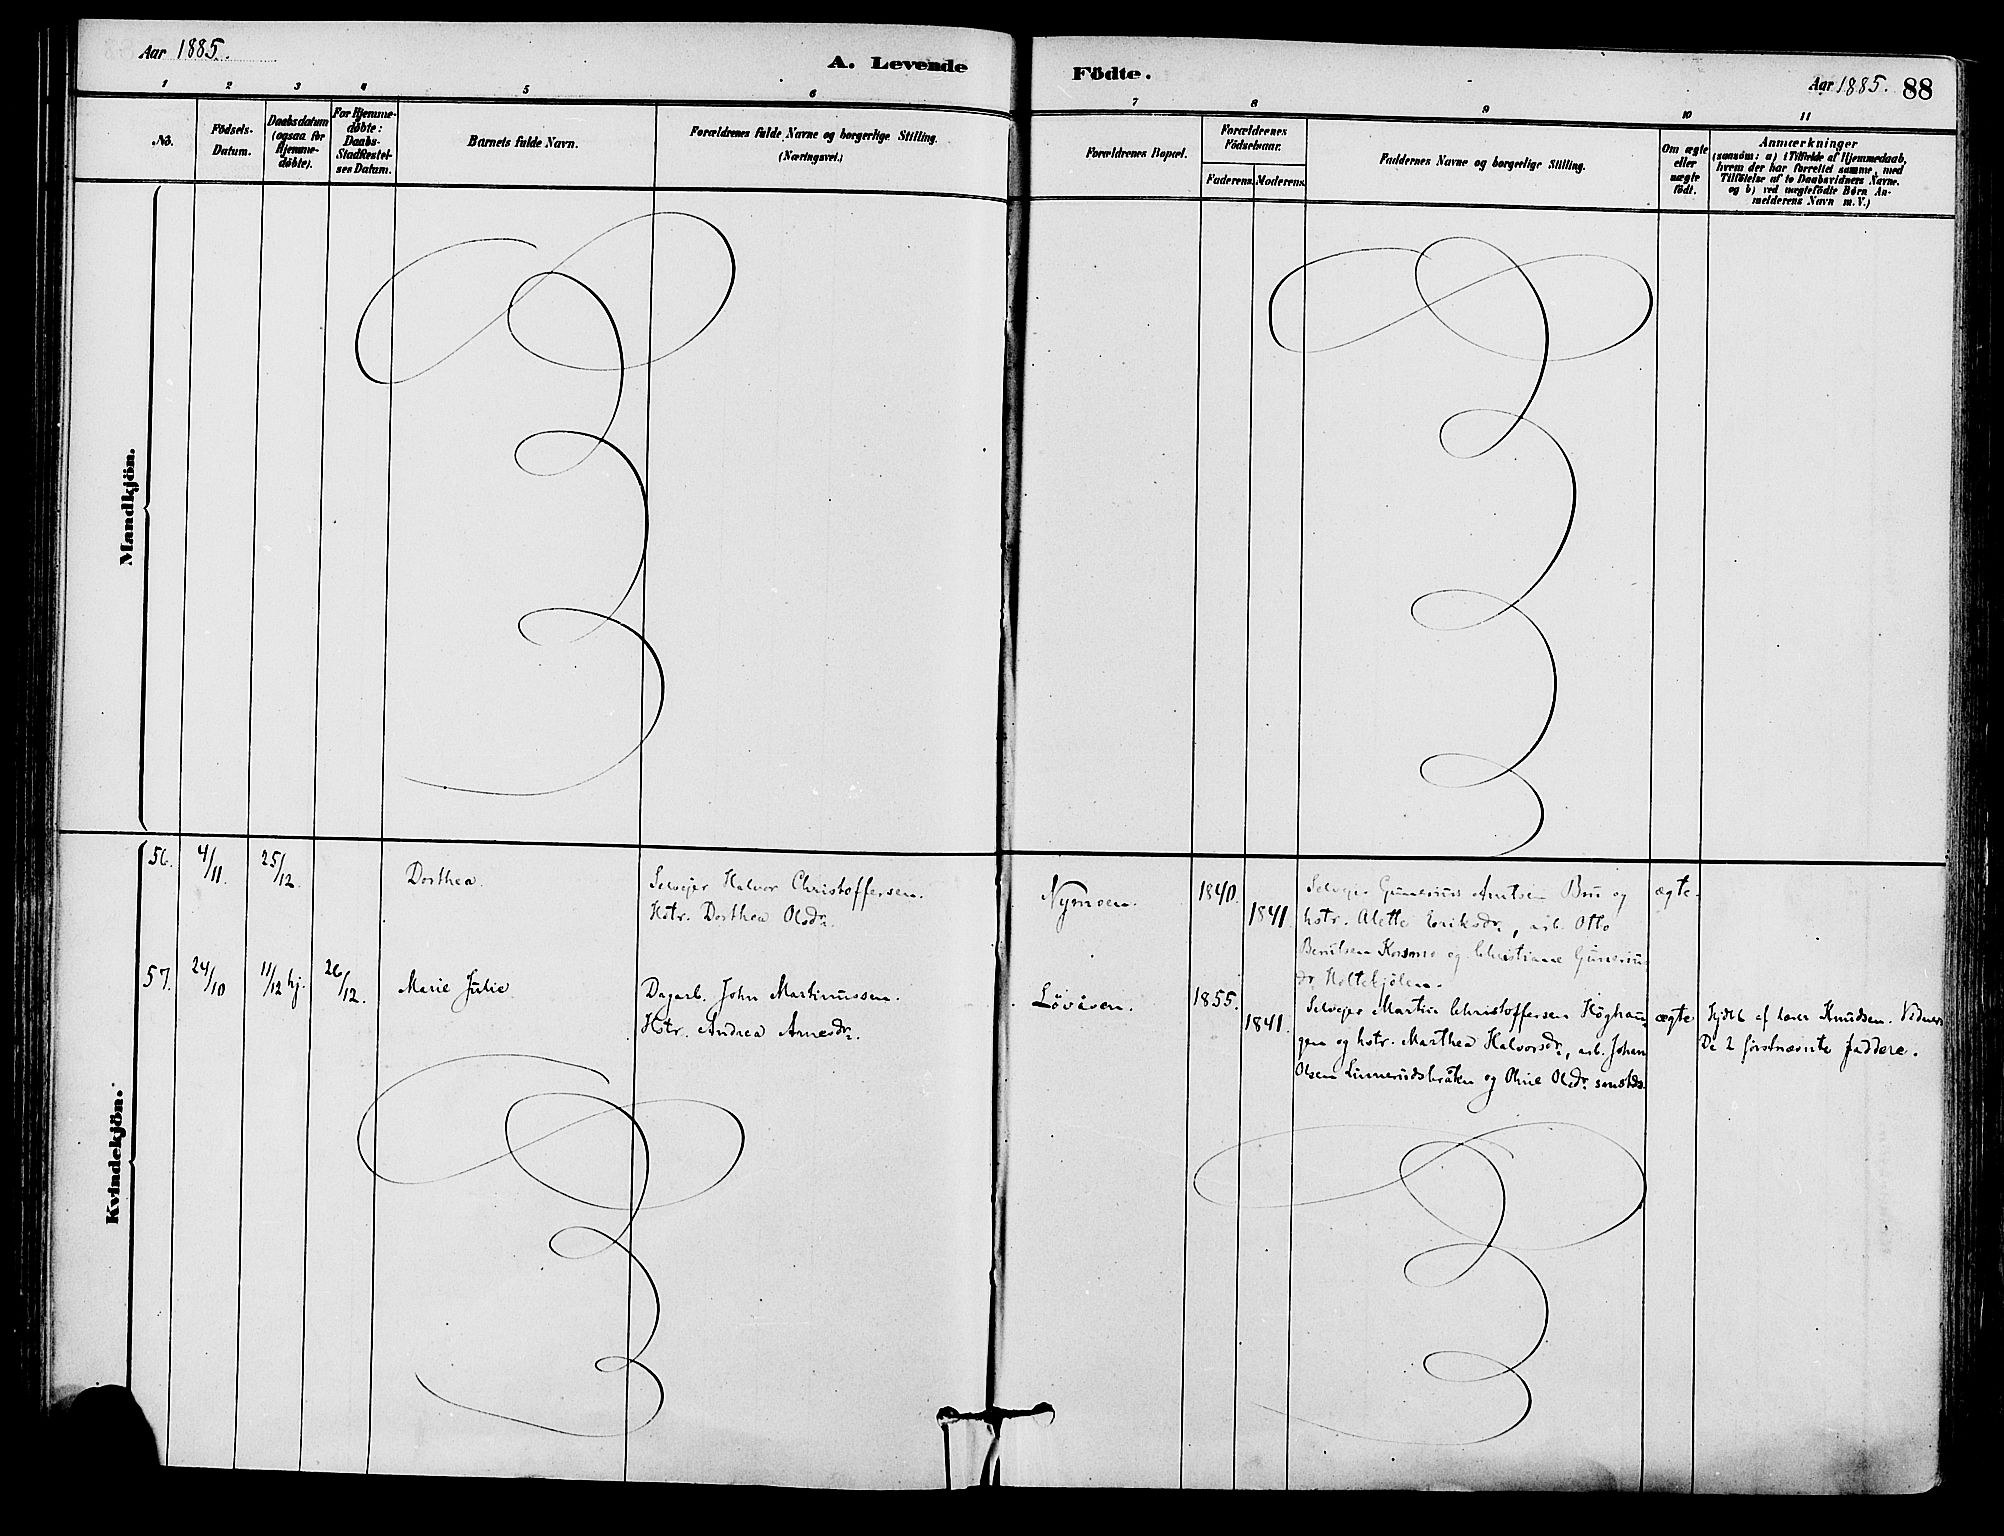 Aar 1885.
A. Levende
Födte.
Aar 1885. 88
1 2 3 4 5 6 7 8 9 10 11
No.
Födsels-
Datum.
Daabsdatum
(ogsaa for
Hjemme-
döbte).
For Hjemme-
döbte:
Daabs-
Stadfæstel-
ses Datum.
Barnets fulde Navn.
Forældrenes fulde Navne og borgerlige Stilling.
(Næringsvei.)
Forældrenes Bopæl.
Forældrenes
Födselsaar.
Faderens. Moderens.
Faddernes Navne og borgerlige Stilling.
Om ægte
eller
uægte
födt.
Anmærkninger
(saasom: a) i Tilfælde af Hjemmedaab,
hvem der har forrettet samme, med
Tilföielse af to Daabsvidners Navne.
og b) ved uægtefödte Börn An-
melderens Navn m. V.)
Mandkjön.
Kvindekjön.
56. 4/11. 25/12. Dorthea.
Selvejer Halvor Christoffersen.
Hstr. Dorthea Olsdr.
Nymoen. 1840. 1841
Selvejer Gunerius Arntsen Bru og
hstr. Alette Eriksdr., arb. Otto
Berntsen Kosmo og Christiane Gunerius
dr. Holtekjölen.
ægte.
57. 24/10 11/12 hj. 26/12. Marie Julie
Dagarb. John Martinussen.
Hstr. Andrea Arnesdr.
Lövåsen. 1855. 1841.
Selvejer Martin Christoffersen Höghau-
gen og hstr. Marthea Halvorsdr., arb. Johan
Olsen Linnerudsbråten og Oline Olsdr. smstds.
ægte
Hjdbt af lærer Knudsen. Vidner
De 2 förstnævnte faddere.